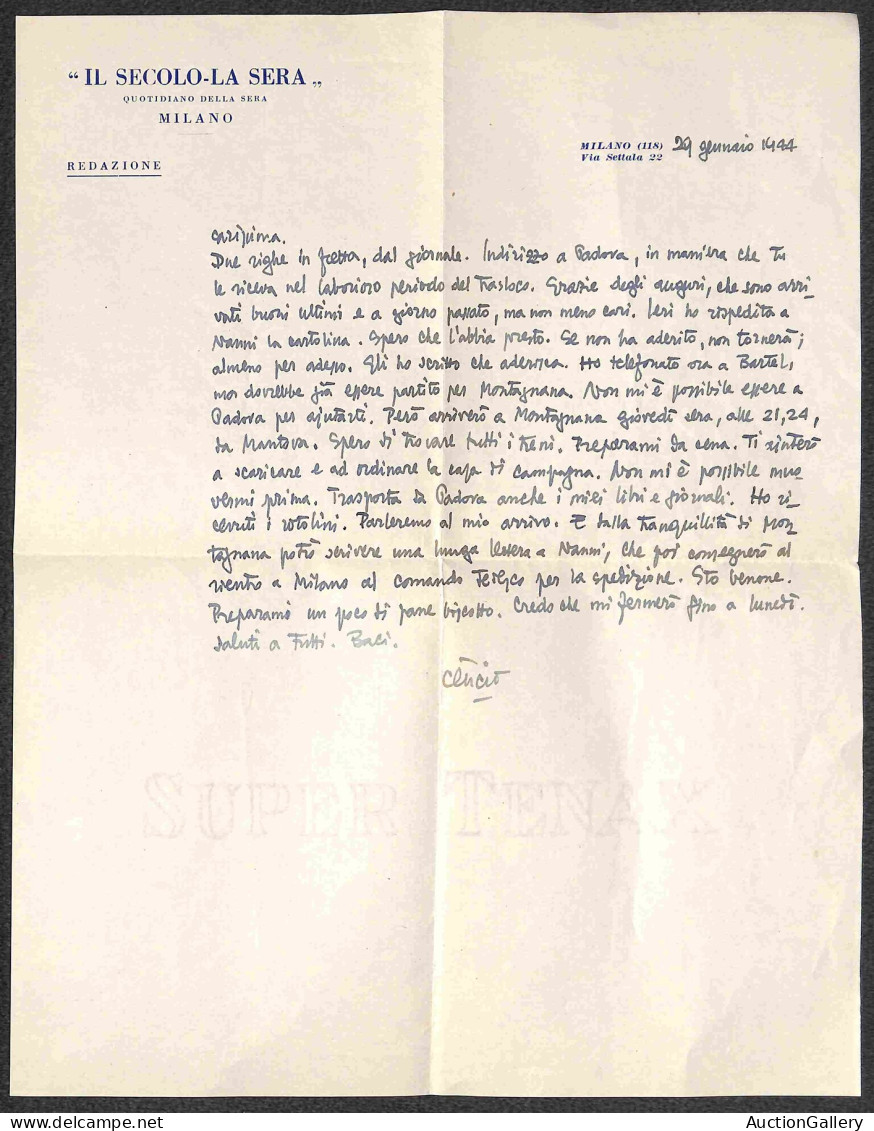 “ IL SECOLO-LA SERA „
QUOTIDIANO DELLA SERA
MILANO
REDAZIONE
MILANO (118)
Via Settala 22
29 gennaio 1944
Carissima.
Due righe in fretta, dal giornale. Indirizzo a Padova, in maniera che tu
le riceva nel laborioso periodo del trasloco. Grazie degli auguri, che sono arri-
vati buoni ultimi e a giorno passato, ma non meno cari. Ieri ho rispedita a
Nanni la cartolina. Spero che l'abbia presto. Se non ha aderito, non tornerà;
almeno per adesso. Gli ho scritto che aderisca. Ho telefonato ora a Bartel,
ma dovrebbe già essere partito per Montagnana. Non mi è possibile essere a
Padova per ajutarti. Però arriverò a Montagnana giovedì sera, alle 21,24,
da Mantova. Spero di trovare tutti i treni. Preparami da cena. Ti ajuterò
a scaricare e ad ordinare la casa di campagna. Non mi è possibile muo-
vermi prima. Trasporta da Padova anche i miei libri e giornali. Ho ri-
cevuti i rotolini. Parleremo al mio arrivo. E dalla tranquillità di Mon-
tagnana potrò scrivere una lunga lettera a Nanni, che poi consegnerò al
rientro a Milano al comando Tedesco per la spedizione. Sto benone.
Preparami un poco di pane biscotto. Credo che mi fermerò fino a lunedì.
Saluti a tutti. Baci.
SUPER TENAX
AuctionGallery